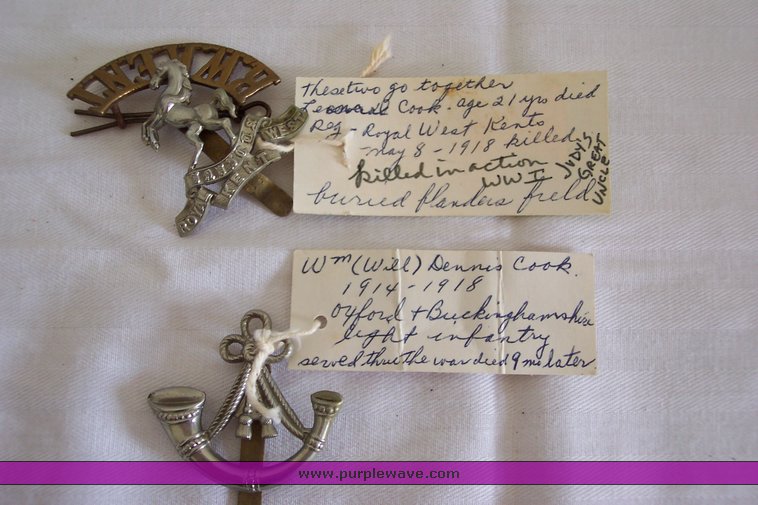 R.W.KENT
INVICTA
ROYAL WEST KENT
These two go together
Leonard Cook. age 21 yrs died
Reg - Royal West Kents
May 8 - 1918 killed.
killed in action
WW I
JUDY'S GREAT UNCLE
buried flanders field
Wm (Will) Dennis Cook.
1914 - 1918
Oxford + Buckinghamshire
light infantry
served thru the war died 9 mo later
www.purplewave.com